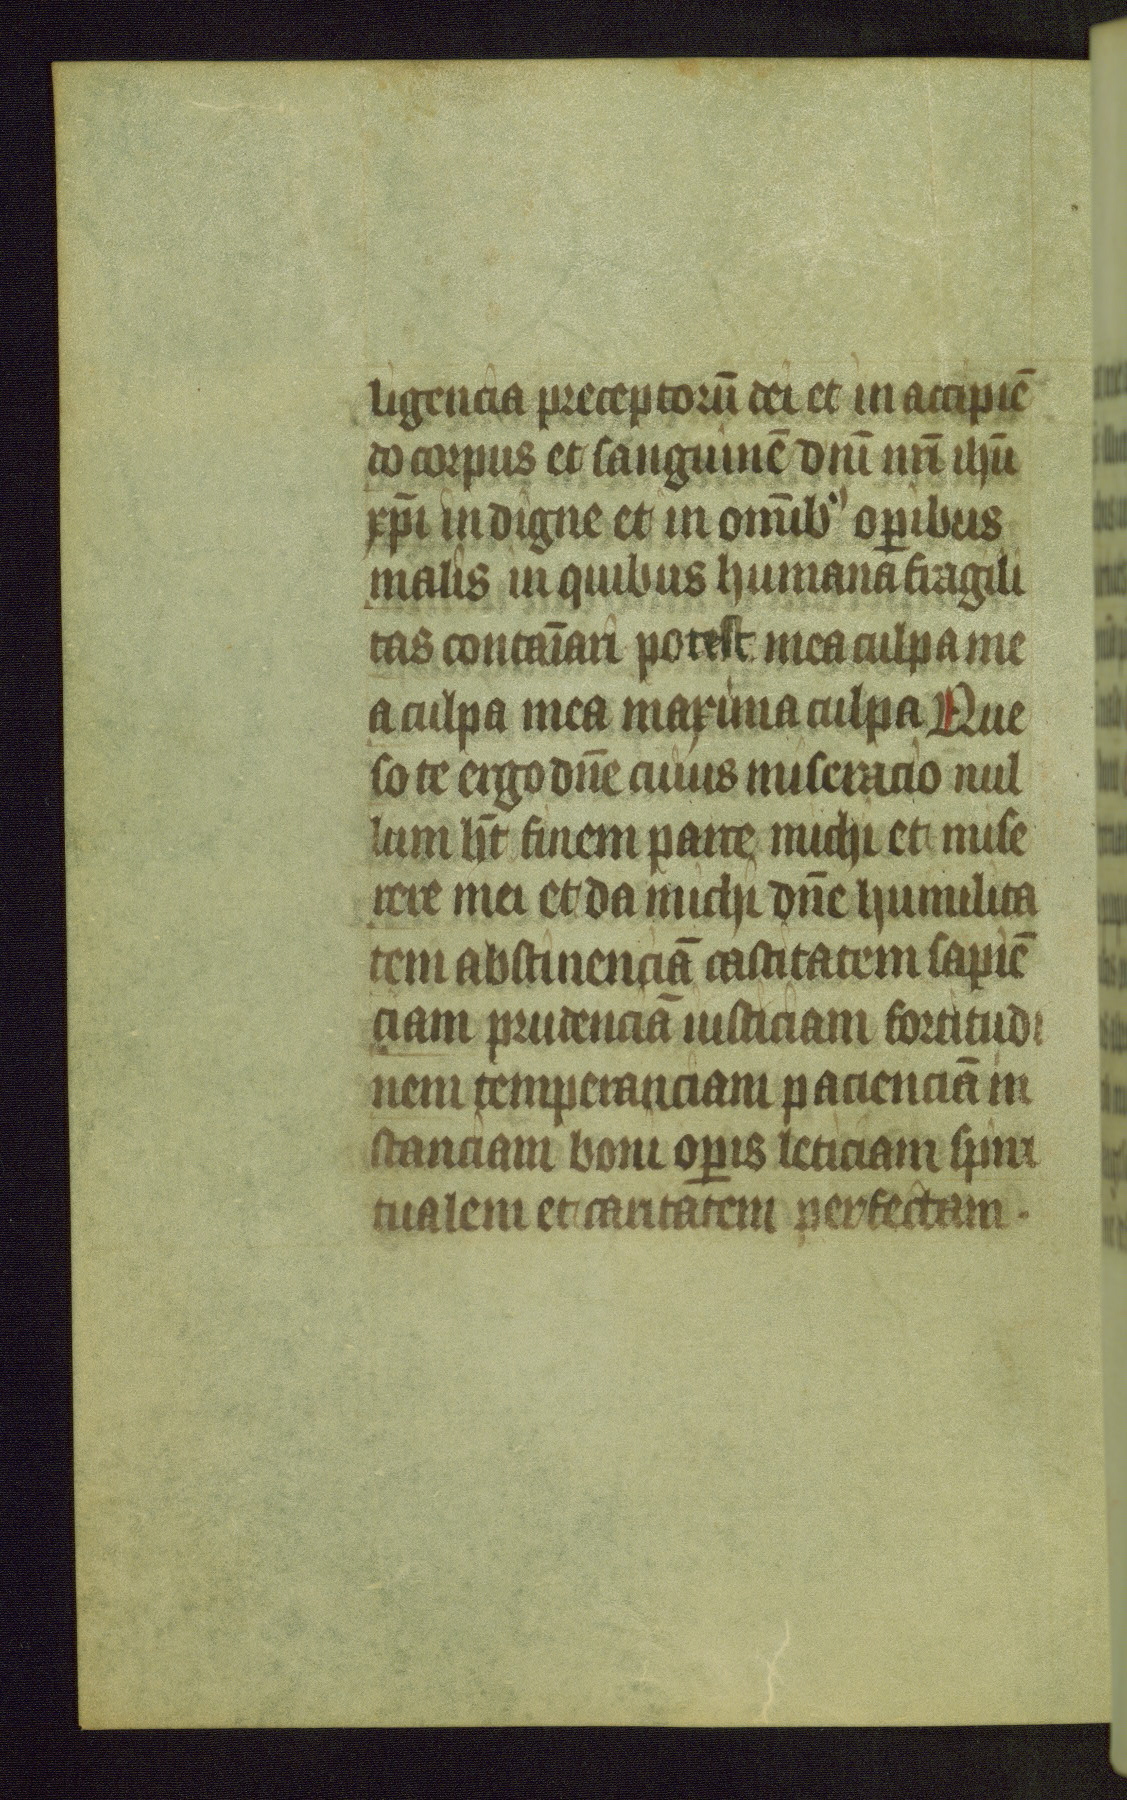 ligencia preceptorū dei et in accipiē
do corpus et sanguinē dn̄i nr̄i ihū
xp̄i indigne et in om̄ib⁹ oꝑibus
malis in quibus humana fragili
tas contaīari potest mea culpa me
a culpa mea maxima culpa Que
so te ergo dn̄e cuius miseracio nul
lum h̄t finem parce michi et mise
rere mei et da michi dn̄e humilita
tem abstinenciā castitatem sapiē
ciam prudenciā iusticiam fortitudi
nem temperanciam pacienciā in
stanciam boni oꝑis leticiam spiri
tualem et caritatem perfectam .